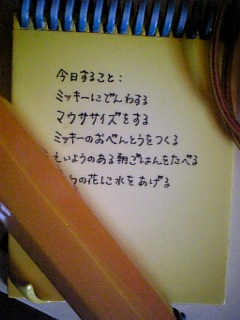 今日すること:
ミッキーにでんわする
マウササイズをする
ミッキーのおべんとうをつくる
えいようのある朝ごはんをたべる
の花に水をあげる